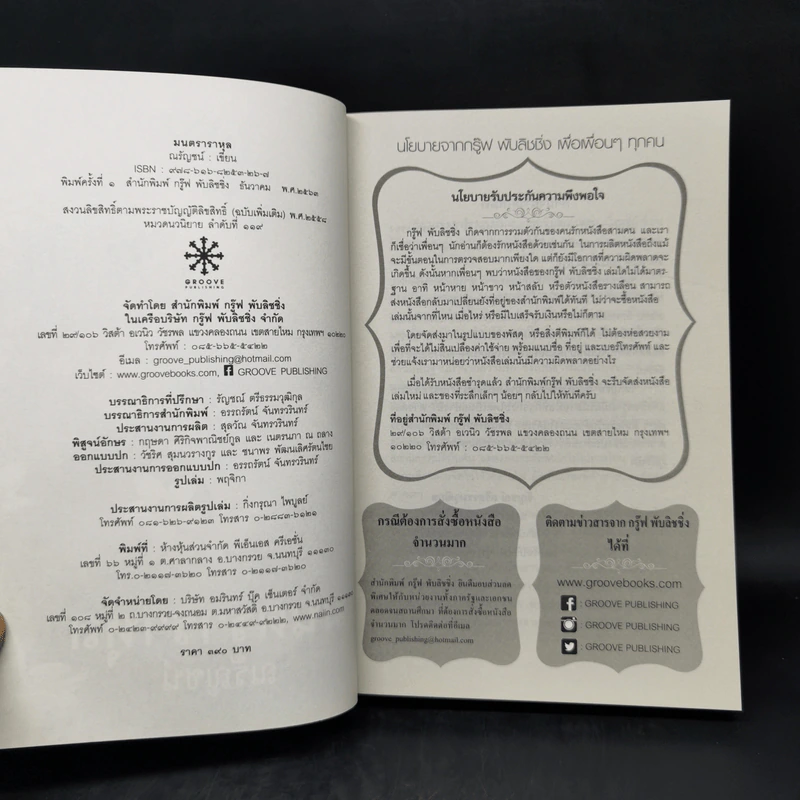 มนตราราหุล
ณรัญชน์ : เขียน
ISBN : ๙๗๘-๖๑๖-๘๒๕๓-๒๖-๗
พิมพ์ครั้งที่ ๑ สำนักพิมพ์ กรู๊ฟ พับลิชชิ่ง ธันวาคม พ.ศ.๒๕๖๓
สงวนลิขสิทธิ์ตามพระราชบัญญัติลิขสิทธิ์ (ฉบับเพิ่มเติม) พ.ศ.๒๕๕๘
หมวดนวนิยาย ลำดับที่ ๑๑๙
GROOVE
PUBLISHING
จัดทำโดย สำนักพิมพ์ กรู๊ฟ พับลิชชิ่ง
ในเครือบริษัท กรู๊ฟ พับลิชชิ่ง จำกัด
เลขที่ ๒๙/๑๐๖ วิสต้า อเวนิว วัชรพล แขวงคลองถนน เขตสายไหม กรุงเทพฯ ๑๐๒๒๐
โทรศัพท์ : ๐๘๕-๖๖๕-๕๔๒๒
อีเมล : groove_publishing@hotmail.com
เว็บไซต์ : www.groovebooks.com, GROOVE PUBLISHING
บรรณาธิการที่ปรึกษา : รัญชณ์ ตรีธรรมวุฒิกุล
บรรณาธิการสำนักพิมพ์ : อรรถรัตน์ จันทรวรินทร์
ประสานงานการผลิต : สุลวัณ จันทรวรินทร์
พิสูจน์อักษร : กฤษดา ศิริกิจพาณิชย์กูล และ เนตรนภา ณ ถลาง
ออกแบบปก : วัชริศ สุมนวรางกูร และ ชนาพร พัฒนเลิศรัตนไชย
ประสานงานการออกแบบปก : อรรถรัตน์ จันทรวรินทร์
รูปเล่ม : พฤจิกา
ประสานงานการผลิตรูปเล่ม : กิ่งกรุณา ไพบูลย์
โทรศัพท์ ๐๘๑-๖๒๖-๙๑๒๓ โทรสาร ๐-๒๘๘๓-๖๑๒๑
พิมพ์ที่ : ห้างหุ้นส่วนจำกัด พีเอ็นเอส ครีเอชั่น
เลขที่ ๖๖ หมู่ที่ ๑ ต.ศาลากลาง อ.บางกรวย จ.นนทบุรี ๑๑๑๓๐
โทร.๐-๒๑๑๗-๓๖๒๐ โทรสาร ๐-๒๑๑๗-๓๖๒๐
จัดจำหน่ายโดย : บริษัท อมรินทร์ บุ๊ค เซ็นเตอร์ จำกัด
เลขที่ ๑๐๘ หมู่ที่ ๒ ถ.บางกรวย-จงถนอม ต.มหาสวัสดิ์ อ.บางกรวย จ.นนทบุรี ๑๑๑๓๐
โทรศัพท์ ๐-๒๔๒๓-๙๙๙๙ โทรสาร ๐-๒๔๔๙-๙๒๒๒, www.naiin.com
ราคา ๓๙๐ บาท
นโยบายจากกรู๊ฟ พับลิชชิ่ง เพื่อเพื่อนๆ ทุกคน
นโยบายรับประกันความพึงพอใจ
กรู๊ฟ พับลิชชิ่ง เกิดจากการรวมตัวกันของคนรักหนังสือสามคน และเรา
ก็เชื่อว่าเพื่อนๆ นักอ่านก็ต้องรักหนังสือด้วยเช่นกัน ในการผลิตหนังสือถึงแม้
จะมีขั้นตอนในการตรวจสอบมากเพียงใด แต่ก็ยังมีโอกาสที่ความผิดพลาดจะ
เกิดขึ้น ดังนั้นหากเพื่อนๆ พบว่าหนังสือของกรู๊ฟ พับลิชชิ่ง เล่มใดไม่ได้มาตร-
ฐาน อาทิ หน้าหาย หน้าขาว หน้าสลับ หรือตัวหนังสือรางเลือน สามารถ
ส่งหนังสือกลับมาเปลี่ยนยังที่อยู่ของสำนักพิมพ์ได้ทันที ไม่ว่าจะซื้อหนังสือ
เล่มนั้นจากที่ไหน เมื่อไหร่ หรือมีใบเสร็จรับเงินหรือไม่ก็ตาม
โดยจัดส่งมาในรูปแบบของพัสดุ หรือสิ่งตีพิมพ์ก็ได้ ไม่ต้องห่อสวยงาม
เพื่อที่จะได้ไม่สิ้นเปลืองค่าใช้จ่าย พร้อมแนบชื่อ ที่อยู่ และเบอร์โทรศัพท์ และ
ช่วยแจ้งเรามาหน่อยว่าหนังสือเล่มนั้นมีความผิดพลาดอย่างไร
เมื่อได้รับหนังสือชำรุดแล้ว สำนักพิมพ์กรู๊ฟ พับลิชชิ่ง จะรีบจัดส่งหนังสือ
เล่มใหม่ และของที่ระลึกเล็กๆ น้อยๆ กลับไปให้ทันทีครับ
ที่อยู่สำนักพิมพ์ กรู๊ฟ พับลิชชิ่ง
๒๙/๑๐๖ วิสต้า อเวนิว วัชรพล แขวงคลองถนน เขตสายไหม กรุงเทพฯ
๑๐๒๒๐ โทรศัพท์ : ๐๘๕-๖๖๕-๕๔๒๒
กรณีต้องการสั่งซื้อหนังสือ
จำนวนมาก
สำนักพิมพ์ กรู๊ฟ พับลิชชิ่ง ยินดีมอบส่วนลด
พิเศษให้กับหน่วยงานทั้งภาครัฐและเอกชน
ตลอดจนสถานศึกษา ที่ต้องการสั่งซื้อหนังสือ
จำนวนมาก โปรดติดต่อที่อีเมล
groove_publishing@hotmail.com
ติดตามข่าวสารจาก กรู๊ฟ พับลิชชิ่ง
ได้ที่
www.groovebooks.com
: GROOVE PUBLISHING
: GROOVE PUBLISHING
: GROOVE PUBLISHING